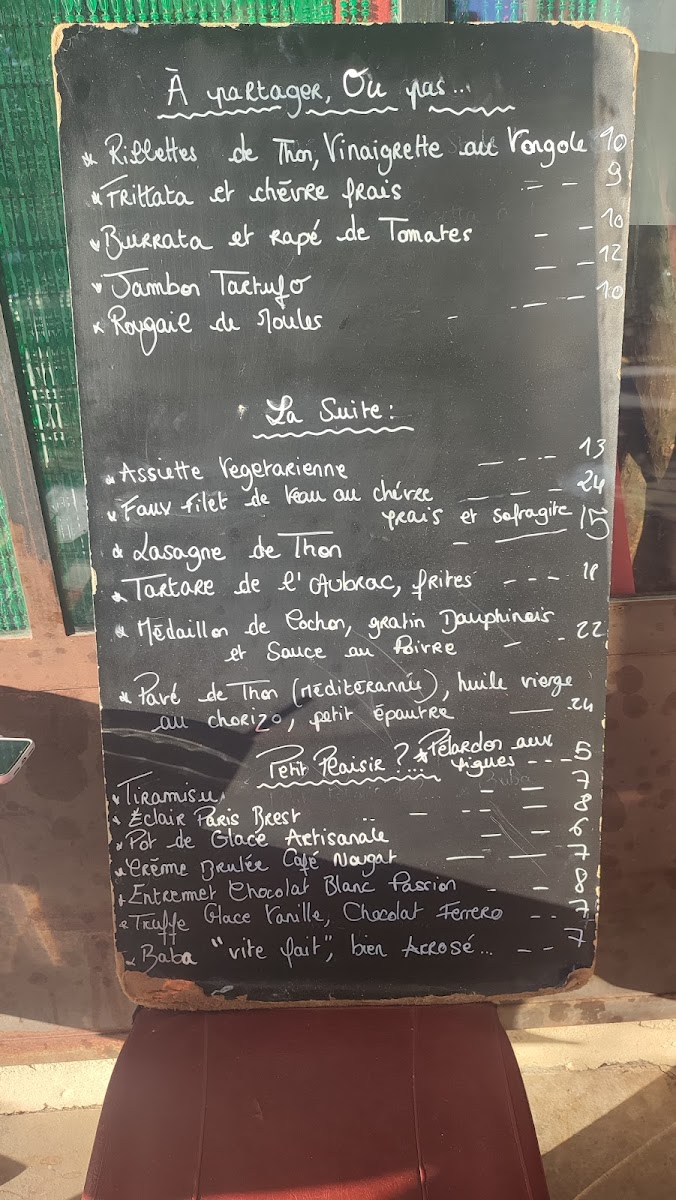 À partager, Ou pas...
* Rillettes de Thon, Vinaigrette au Vongole 10
* Frittata et chèvre frais - - 9
* Burrata et rapé de Tomates - - 10
* Jambon Tartufo - - 12
* Rougaie de Moules - - - 10
La Suite :
* Assiette Vegetarienne - - - - 13
* Faux Filet de Veau au chévre - - - - 24
frais et safragite
* Lasagne de Thon - - 15
* Tartare de l'Aubrac, frites - - - 18
* Médaillon de Cochon, gratin Dauphinois
et Sauce au Poivre - - 22
* Pavé de Thon (Méditerannée), huile vierge
au chorizo, petit épautre - 24
Petit Plaisir ? * Pélardon aux
figues - - - 5
* Tiramisu - - 7
* Éclair Paris Brest .. - - - 8
* Pot de Glace Artisanale - - 6
* Crème Brulée Café Nougat - - 7
* Entremet Chocolat Blanc Passion - - 8
* Truffe Glace Vanille, Chocolat Ferrero - - 7
* Baba "vite fait", bien Arrosé... - - 7